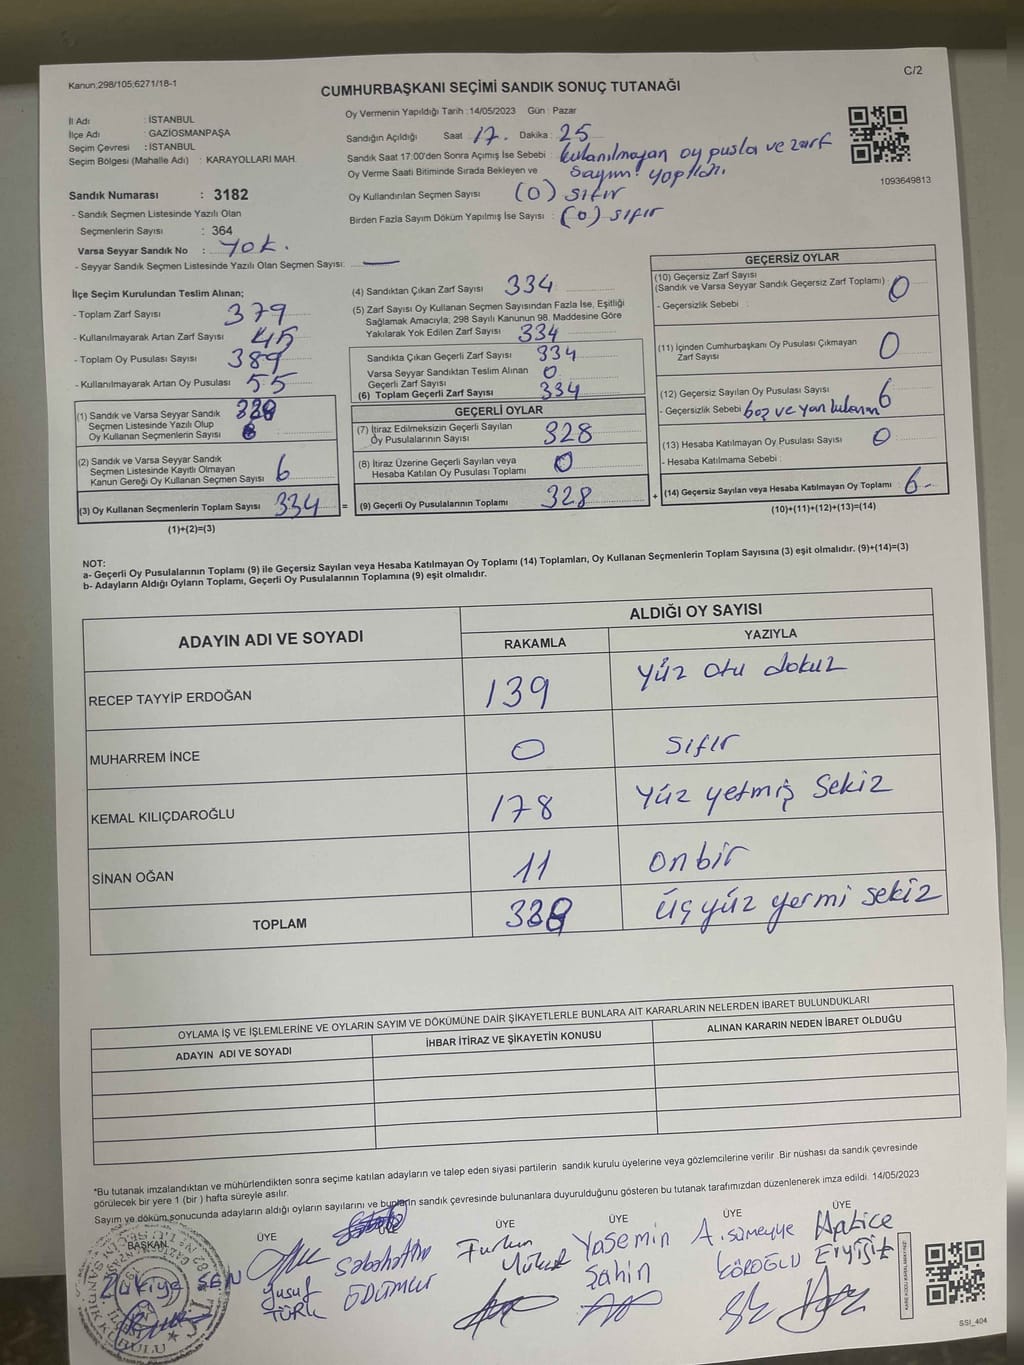 Kanun;298/105;6271/18-1
C/2
CUMHURBAŞKANI SEÇİMİ SANDIK SONUÇ TUTANAĞI
İl Adı : İSTANBUL
İlçe Adı : GAZİOSMANPAŞA
Seçim Çevresi : İSTANBUL
Seçim Bölgesi (Mahalle Adı) : KARAYOLLARI MAH.
Sandık Numarası : 3182
- Sandık Seçmen Listesinde Yazılı Olan
Seçmenlerin Sayısı : 364
Varsa Seyyar Sandık No : Yok.
- Seyyar Sandık Seçmen Listesinde Yazılı Olan Seçmen Sayısı: —
Oy Vermenin Yapıldığı Tarih :14/05/2023 Gün : Pazar
Sandığın Açıldığı Saat 17. Dakika : 25
Sandık Saat 17:00'den Sonra Açımış İse Sebebi : kulanılmayan oy pusla ve zarf
Oy Verme Saati Bitiminde Sırada Bekleyen ve sayımı yapıldı.
Oy Kullandırılan Seçmen Sayısı (0) sıfır
Birden Fazla Sayım Döküm Yapılmış İse Sayısı : (0) sıfır
1093649813
İlçe Seçim Kurulundan Teslim Alınan;
- Toplam Zarf Sayısı : 379
- Kullanılmayarak Artan Zarf Sayısı : 45
- Toplam Oy Pusulası Sayısı : 389
- Kullanılmayarak Artan Oy Pusulası : 55
(1) Sandık ve Varsa Seyyar Sandık
Seçmen Listesinde Yazılı Olup
Oy Kullanan Seçmenlerin Sayısı :
(2) Sandık ve Varsa Seyyar Sandık
Seçmen Listesinde Kayıtlı Olmayan
Kanun Gereği Oy Kullanan Seçmen Sayısı : 6
(3) Oy Kullanan Seçmenlerin Toplam Sayısı : 334 =
(1)+(2)=(3)
(4) Sandıktan Çıkan Zarf Sayısı : 334
(5) Zarf Sayısı Oy Kullanan Seçmen Sayısından Fazla İse, Eşitliği
Sağlamak Amacıyla, 298 Sayılı Kanunun 98. Maddesine Göre
Yakılarak Yok Edilen Zarf Sayısı : 334
Sandıkta Çıkan Geçerli Zarf Sayısı : 334
Varsa Seyyar Sandıktan Teslim Alınan
Geçerli Zarf Sayısı : 0
(6) Toplam Geçerli Zarf Sayısı : 334
GEÇERLİ OYLAR
(7) İtiraz Edilmeksizin Geçerli Sayılan
Oy Pusulalarının Sayısı : 328
(8) İtiraz Üzerine Geçerli Sayılan veya
Hesaba Katılan Oy Pusulası Toplamı : 0
(9) Geçerli Oy Pusulalarının Toplamı : 328 +
GEÇERSİZ OYLAR
(10) Geçersiz Zarf Sayısı
(Sandık ve Varsa Seyyar Sandık Geçersiz Zarf Toplamı) : 0
- Geçersizlik Sebebi :
(11) İçinden Cumhurbaşkanı Oy Pusulası Çıkmayan
Zarf Sayısı : 0
(12) Geçersiz Sayılan Oy Pusulası Sayısı : 6
- Geçersizlik Sebebi : boş ve yan
(13) Hesaba Katılmayan Oy Pusulası Sayısı : 0
- Hesaba Katılmama Sebebi :
(14) Geçersiz Sayılan veya Hesaba Katılmayan Oy Toplamı : 6-
(10)+(11)+(12)+(13)=(14)
NOT:
a- Geçerli Oy Pusulalarının Toplamı (9) ile Geçersiz Sayılan veya Hesaba Katılmayan Oy Toplamı (14) Toplamları, Oy Kullanan Seçmenlerin Toplam Sayısına (3) eşit olmalıdır. (9)+(14)=(3)
b- Adayların Aldığı Oyların Toplamı, Geçerli Oy Pusulalarının Toplamına (9) eşit olmalıdır.
ADAYIN ADI VE SOYADI
ALDIĞI OY SAYISI
RAKAMLA YAZIYLA
RECEP TAYYİP ERDOĞAN 139 Yüz otu dokuz
MUHARREM İNCE 0 sıfır
KEMAL KILIÇDAROĞLU 178 Yüz yetmiş sekiz
SİNAN OĞAN 11 onbir
TOPLAM 328 üçyüz yermi sekiz
OYLAMA İŞ VE İŞLEMLERİNE VE OYLARIN SAYIM VE DÖKÜMÜNE DAİR ŞİKAYETLERLE BUNLARA AİT KARARLARIN NELERDEN İBARET BULUNDUKLARI
ADAYIN ADI VE SOYADI İHBAR İTİRAZ VE ŞİKAYETİN KONUSU ALINAN KARARIN NEDEN İBARET OLDUĞU
*Bu tutanak imzalandıktan ve mühürlendikten sonra seçime katılan adayların ve talep eden siyasi partilerin sandık kurulu üyelerine veya gözlemcilerine verilir Bir nüshası da sandık çevresinde
görülecek bir yere 1 (bir ) hafta süreyle asılır.
Sayım ve döküm sonucunda adayların aldığı oyların sayılarını ve bunların sandık çevresinde bulunanlara duyurulduğunu gösteren bu tutanak tarafımızdan düzenlenerek imza edildi. 14/05/2023
BAŞKAN ÜYE ÜYE ÜYE ÜYE ÜYE
Zükiye ŞEN
Yusuf TÜRK
Sabahattin
Furkan
Yasemin Şahin
A. sümeyye KÖROĞLU
Hatice Eryiğit
KARE KODU KARALAMAYINIZ
SSİ_404